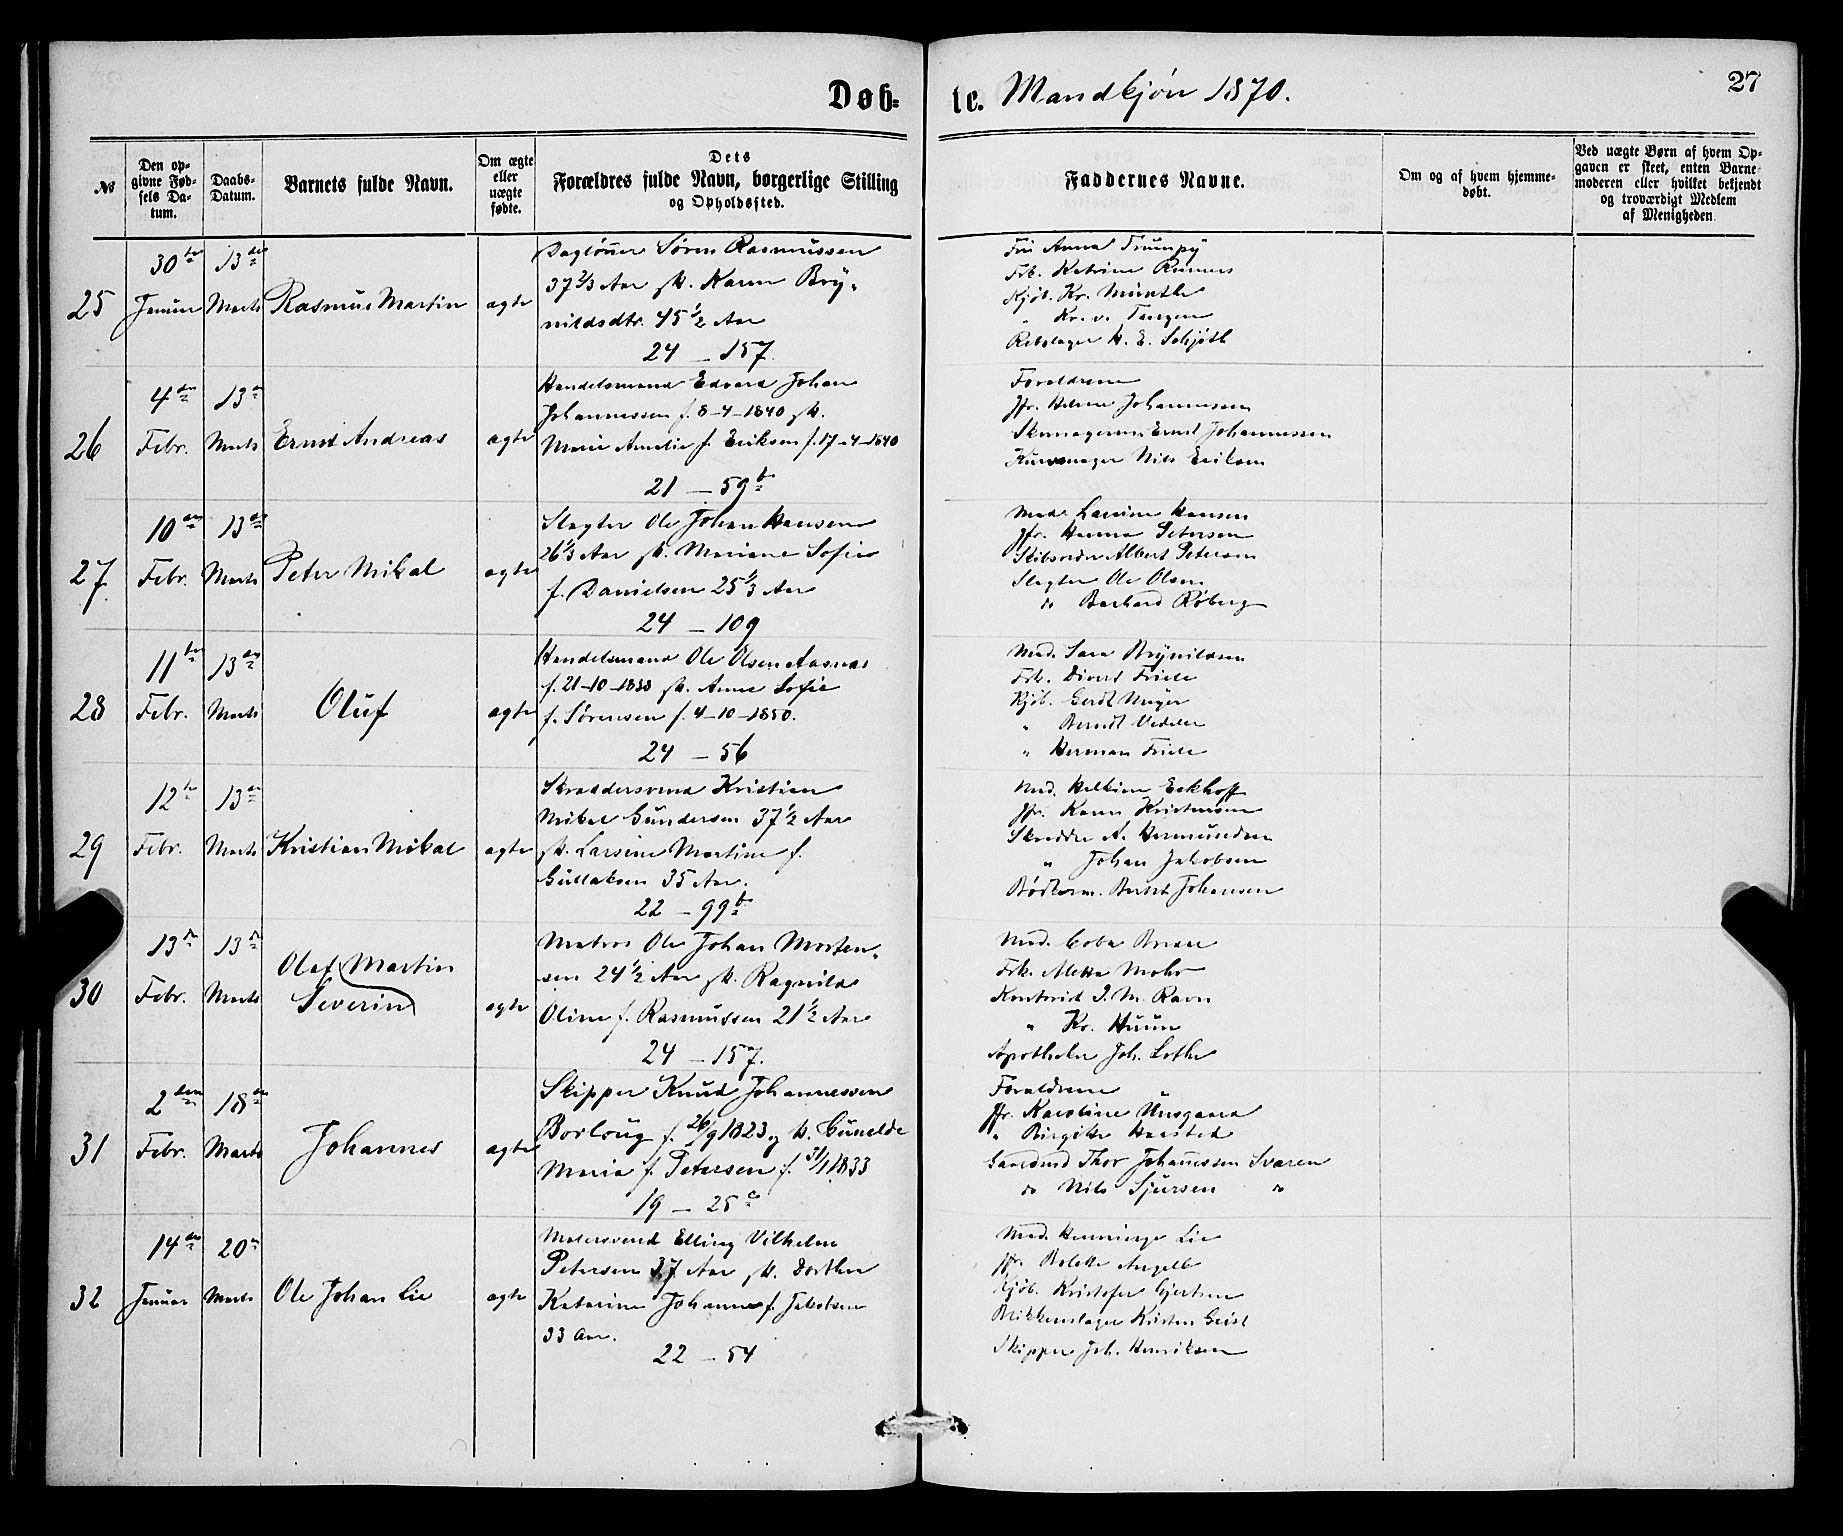 Døb-
te. Mandkjøn 1870.
27
№
Den op-
givne Fød-
sels Da-
tum.
Daabs-
Datum.
Barnets fulde Navn.
Om ægte
eller
uægte
fødte.
Dets
Forældres fulde Navn, borgerlige Stilling
og Opholdssted.
Faddernes Navne.
Om og af hvem hjemme-
døbt.
Ved uægte Børn af hvem Op-
gaven er skeet, enten Barne-
moderen eller hvilket bekjendt
og troværdigt Medlem
af Menigheden.
25
30te
Januar
13de
Marts
Rasmus Martin
ægte
Dagløner Søren Rasmussen
37 2/3 Aar og H. Karen Bry-
nildsdtr. 45 1/2 Aar
24 – 157.
Fru Anna Trumpy
Frk. Katrine
Kjøb. Kr. Münthe
" Kr. v. Tangen
Rebslager H. E. Schjøtt
26
4de
Febr.
13de
Marts
Ernst Andreas
ægte
Handelsmand Edvard Johan
Johannessen f. 8-4-1840 og H.
Marie Amalie f. Eriksen f. 17-4-1840
21 – 59b
Forældrene
Jfr. Helene Johannessen
Skomagersv. Ernst Johannessen
Nils Eriksen
27
10de
Febr.
13de
Marts
Peter Mikal
ægte
Slagter Ole Johan Hansen
26 1/3 Aar og H. Mariane Sofie
f. Danielsen 25 1/3 Aar
24 – 109
Mad. Larsine Hansen
Jfr. Hanna Petersen
Skibsreder Albert Petersen
Slagter Ole Olsen
do Røberg
28
11te
Febr.
13de
Marts
Oluf
ægte
Handelsmand Ole Olsen Aasnæs
f. 21-10-1838 og H. Anne Sofie
f. Sørensen f. 4-10-1850.
24 – 56
Mad. Sara Brynildsen
Frk. Divert Friele
Kjøb. Gerdt Meyer
" Berndt Vedeler
" Herman Friele
29
12te
Febr.
13de
Marts
Kristian Mikal
ægte
Skræddersvend Kristian
Mikal Gundersen 37 1/2 Aar
og H. Larsine Martine f.
Gullaksen 35 Aar.
22 – 99b
Mad. Eckhoff
Jfr. Karen Kristensen
Skrædder A. Hermundsen
" Johan Jakobsen
Bødkerm. Johansen
30
13de
Febr.
13de
Marts
Olaf Martin
Severin
ægte
Matros Ole Johan Morten-
sen 24 1/2 Aar og H. Ragnilde
Oline f. Rasmussen 21 1/2 Aar
24 – 157.
Mad.
Frk. Aletta Mohr
Kontorist J. M. Ravn
" Kr. Huun
Apotheker Joh. Lothe
31
2den
Febr.
18de
Marts
Johannes
ægte
Skipper Knud Johannessen
Borlaug f. 26/9 1823 og H. Gunelde
Maria f. Petersen f. 31/1 1833
19 – 25c
Forældrene
Jfr. Karoline
" Birgitte Harsted
Gaardmd Thor Johannessen Svaren
do Nils Sjursen do
32
14de
Januar
20de
Marts
Ole Johan Lie
ægte
Malersvend Elling Vilhelm
Petersen 37 Aar og H. Dorthea
Katarine Johanne f. Jakobsen
33 Aar.
22 – 54
Mad. Henninge Lie
Jfr. Bolette Angell
Kjøb. Kristofer Gjertsen
Blikkenslager Kristen Geist
Skipper Joh. Henriksen